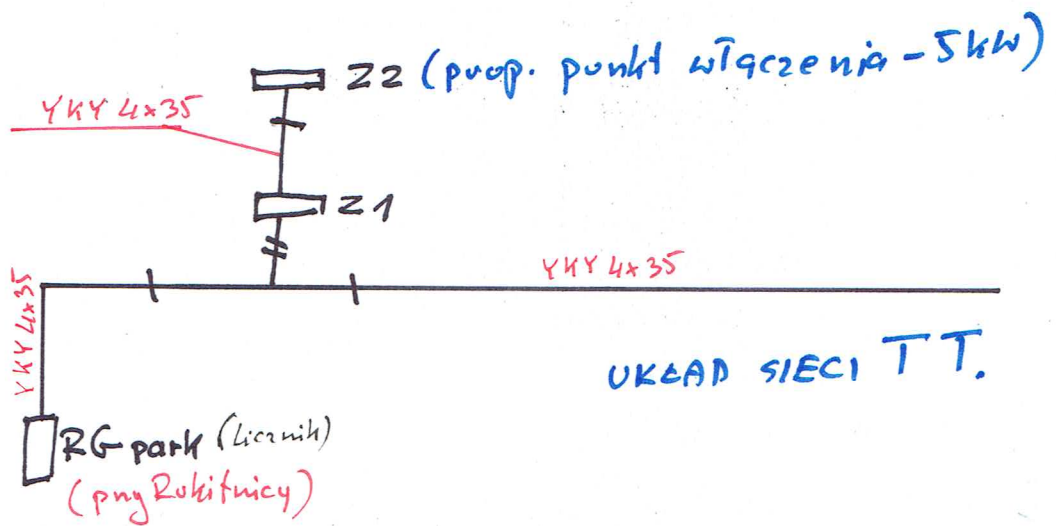 Z2 (prop. punkt włączenia - 5kW)
YKY 4x35
Z1
YKY 4x35
YKY 4x35
UKŁAD SIECI TT.
RG park (licznik)
(przy Rokitnicy)